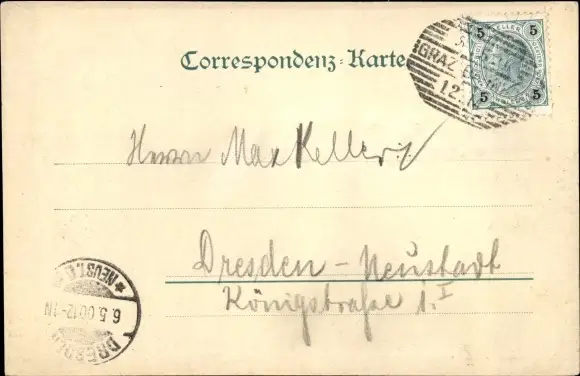 Correspondenz-Karte
5 5
5 5
GRAZ
12
Herrn Max Keller
Dresden-Neustadt
Königstraße 1. I
NEUST.
6.5.00.12-1N
DRESDEN